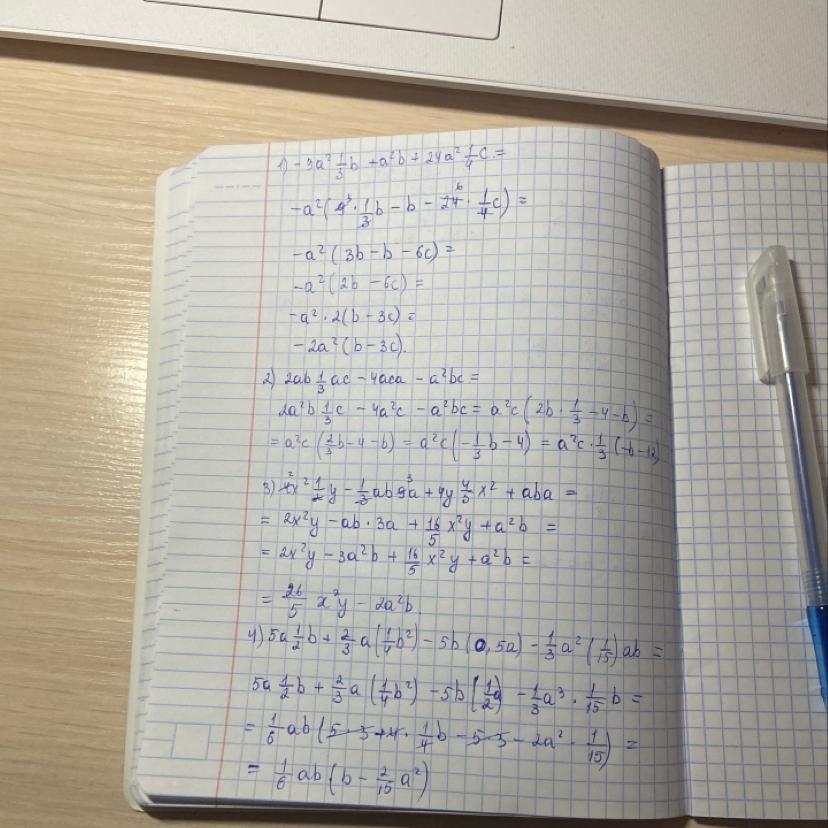 1) -9a² 1/3 b + a²b + 24a² 1/4 c =
-a²(9³ · 1/3 b - b - 24⁶ · 1/4 c) =
-a²(3b - b - 6c) =
-a²(2b - 6c) =
-a² · 2(b - 3c) =
-2a²(b - 3c).
2) 2ab 1/3 ac - 4aca - a²bc =
2a²b 1/3 c - 4a²c - a²bc = a²c(2b · 1/3 - 4 - b) =
= a²c(2/3 b - 4 - b) = a²c(-1/3 b - 4) = a²c · 1/3 (-b - 12)
3) 4²x² 1/2 y - 1/3 ab 9³a + 4y 4/5 x² + aba =
= 2x²y - ab · 3a + 16/5 x²y + a²b =
= 2x²y - 3a²b + 16/5 x²y + a²b =
= 26/5 x²y - 2a²b.
4) 5a 1/2 b + 2/3 a(1/4 b²) - 5b(0,5a) - 1/3 a² (1/15) ab =
5a 1/2 b + 2/3 a (1/4 b²) - 5b (1/2 a) - 1/3 a³ · 1/15 b =
= 1/6 ab (5·3 + 4 · 1/4 b - 5·3 - 2a² · 1/15) =
= 1/6 ab (b - 2/15 a²)